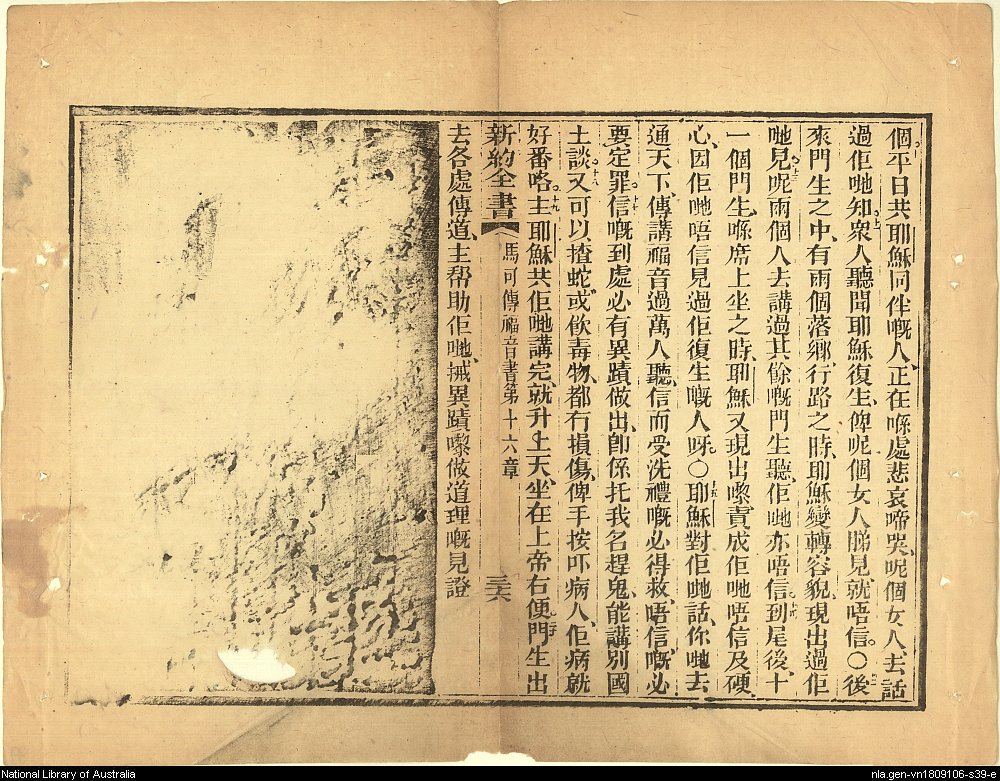 個平日共耶穌同伴嘅人、正在喺處悲哀啼哭、呢個女人去話
過佢哋知、衆人聽聞耶穌復生、俾呢個女人睇見就唔信。〇後
來門生之中、有兩個落鄉行路之時、耶穌變轉容貌、現出過佢
哋見、呢兩個人去講過其餘嘅門生聽、佢哋亦唔信、到尾後、十
一個門生、喺席上坐之時、耶穌又現出嚟責成佢哋唔信及硬
心、因佢哋唔信見過佢復生嘅人呀。〇耶穌對佢哋話、你哋去
通天下、傳講福音過萬人聽、信而受洗禮嘅必得救、唔信嘅必
要定罪。信嘅到處必有異蹟做出、卽係托我名趕鬼、能講別國
土談、又可以揸蛇、或飲毒物、都冇損傷、俾手按吓病人、佢病就
好番咯。主耶穌共佢哋講完、就升上天、坐在上帝右便、門生出
新約全書 馬可傳福音書第十六章 三六
去各處傳道、主帮助佢哋、㨢異蹟嚟做道理嘅見證
National Library of Australia nla.gen-vn1809106-s39-e